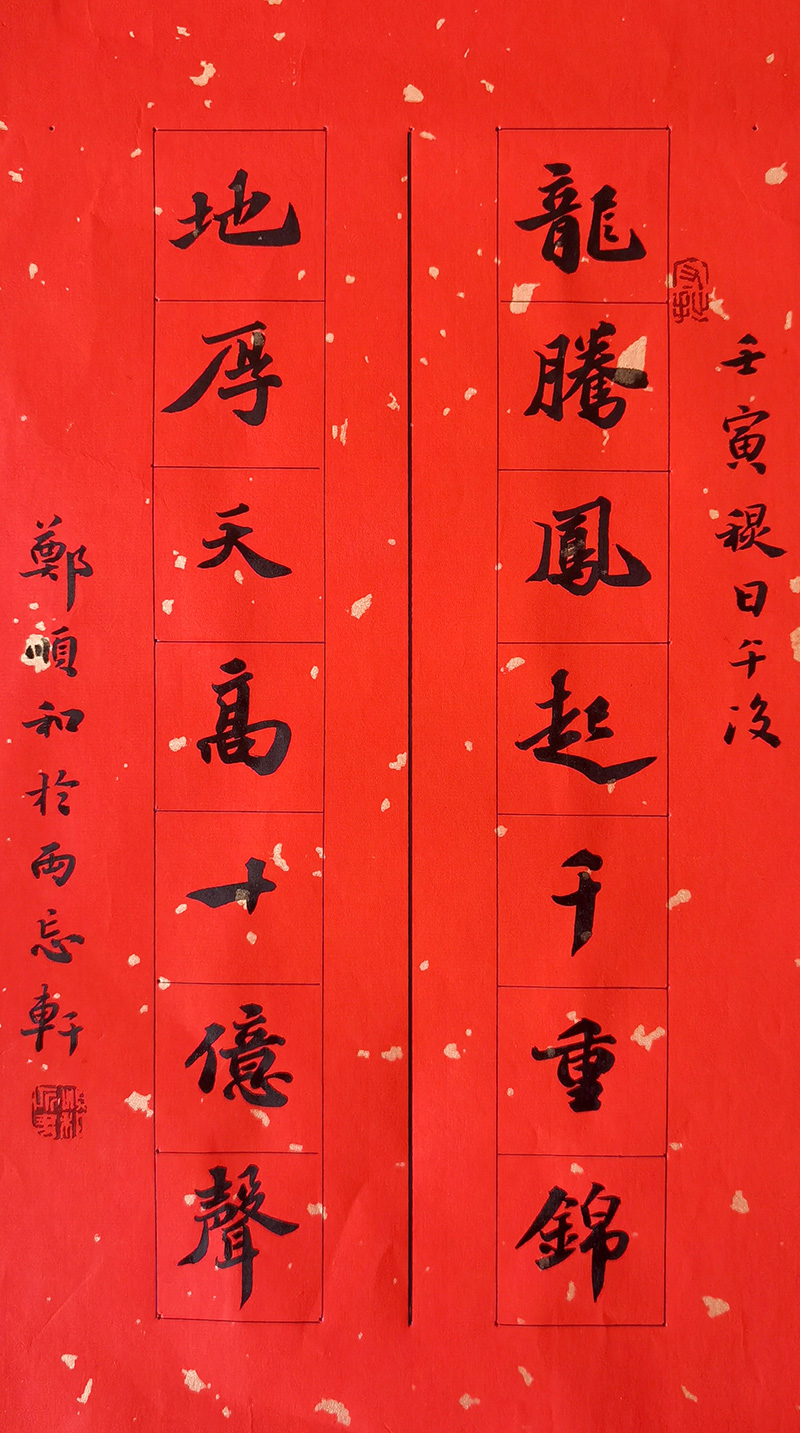 壬寅日午後
龍騰鳳起千重錦
地厚天高十億聲
鄭順和於兩忘軒